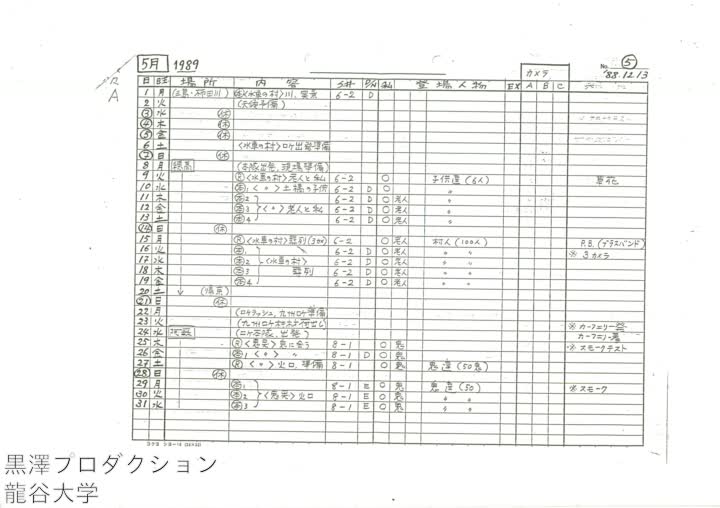 5月 1989
No. 5
'88.12.13
カメラ
日 曜 場所 内容 S,# D/N 私 登場人物 EX A B C
1 月 <水車の村>川、実景 6-2 D
2 火 (天候予備)
3 水 休
4 木 休
5 金 休
6 土 <水車の村>ロケ出発準備
7 日 休
8 月 穂高 (本隊出発、現場準備)
9 火 R<水車の村>老人と私 6-2 O 子供達(6人) 草花
10 水 本1 <〃>土橋の子供 6-2 D O 〃
11 木 本2 6-2 D O 老人 〃
12 金 本3 <〃>老人と私 6-2 D O 老人 〃
13 土 本4 6-2 D O 老人 〃
14 日 休
15 月 R<水車の村>葬列 6-2 O 老人 村人(100人) P.B.(ブラスバンド)
16 火 本1 6-2 D O 老人 〃 〃 ※3カメラ
17 水 本2 <水車の村> 6-2 D O 老人 〃 〃
18 木 本3 葬列 6-2 D O 老人 〃 〃
19 金 本4 6-2 D O 老人 〃 〃
20 土 ↓ (帰京)
21 日 休
22 月 (ロケラッシュ、九州ロケ準備)
23 火 ※カーフェリー
24 水 阿蘇 (ロケ本隊、出発) カーフェリー
25 木 R<鬼哭>鬼に会う 8-1 O 鬼 ※スモークテスト
26 金 本1 <〃> 〃 8-1 D O 鬼
27 土 R<〃>火口、準備 8-1 O 鬼 鬼達(50鬼)
28 日 休
29 月 本1 8-1 E O 鬼 鬼達(50) ※スモーク
30 火 本2 <鬼哭>火口 8-1 E O 鬼 〃 〃
31 水 本3 8-1 E O 鬼 〃 〃
黒澤プロダクション
龍谷大学